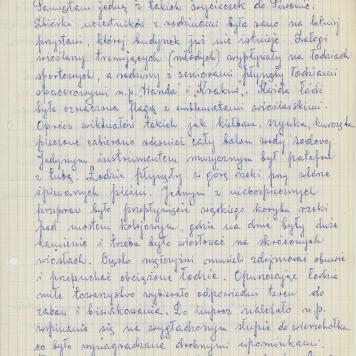 Pamiętam jedną z takich wycieczek do
Zbiórka uczestników z rodzinami była rano na letniej
przystani, której budynek już nie istnieje. Załogi
wioślarzy trenujących (młodych) wypływały na łodziach
sportowych, a rodziny z seniorami płynęły łodziami
spacerowymi n.p. Wanda i Krakus. Każda łódź
była oznaczona flagą z emblematami wioślarskimi.
Oprócz wiktuałów takich jak kiełbasa, szynka, kurczęta
pieczone zabierano również cały balon wody sodowej.
Jedynym instrumentem muzycznym był patefon
z tubą. Łodzie płynęły w górę rzeki przy wtórze
śpiewanych piosenek. Jednym z niebezpiecznych
przepraw było przepłynięcie wąskiego koryta rzeki
pod mostem kolejowym, gdzie na dnie były duże
kamienie i trzeba było wiosłować na skróconych
wiosłach. Często mężczyźni musieli zdejmować obuwie
i przepychać obciążone łodzie. Opuszczając łodzie
miłe towarzystwo wybierało odpowiedni teren do
zabaw i biwakowania. Do imprez należało n.p.
wspinanie się na wygładzonym słupie do wierzchołka
co było wynagradzane drobnymi upominkami.